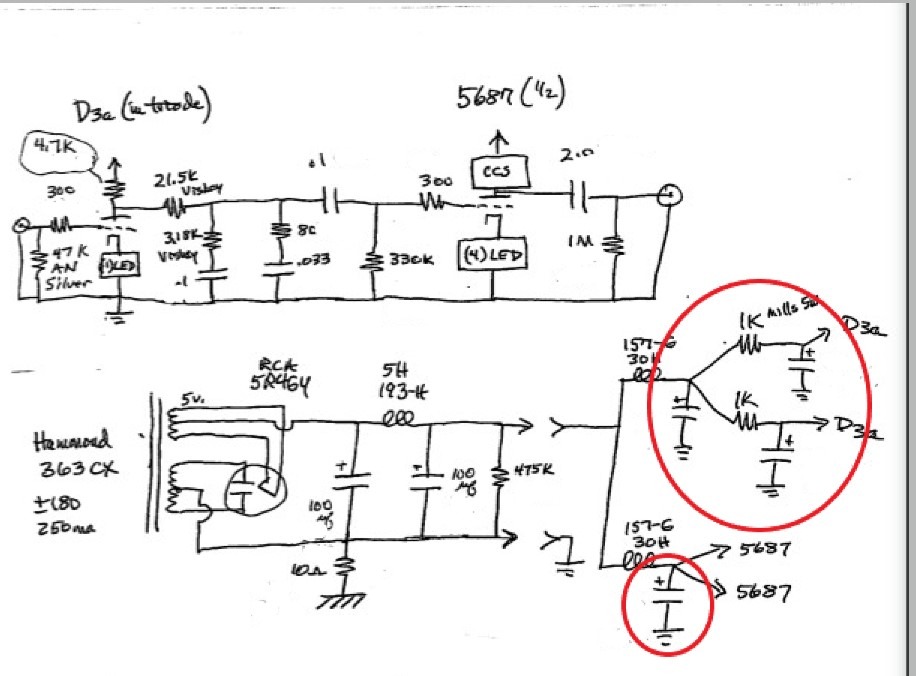 D3a (in triode)
5687 (1/2)
4.7K
300
21.5K
Vishay
.1
300
CCS
2.0
3.18K
Vishay
80
47K
AN
Silver
(1)LED
.1
.033
330K
(4)LED
1M
RCA
5R4GY
5v.
5H
193-H
157-G
30H
1K Mills 5W
D3a
1K
D3a
Hammond
363CX
±180
250ma
100
µf
100
µf
475K
10Ω
157-G
30H
5687
5687